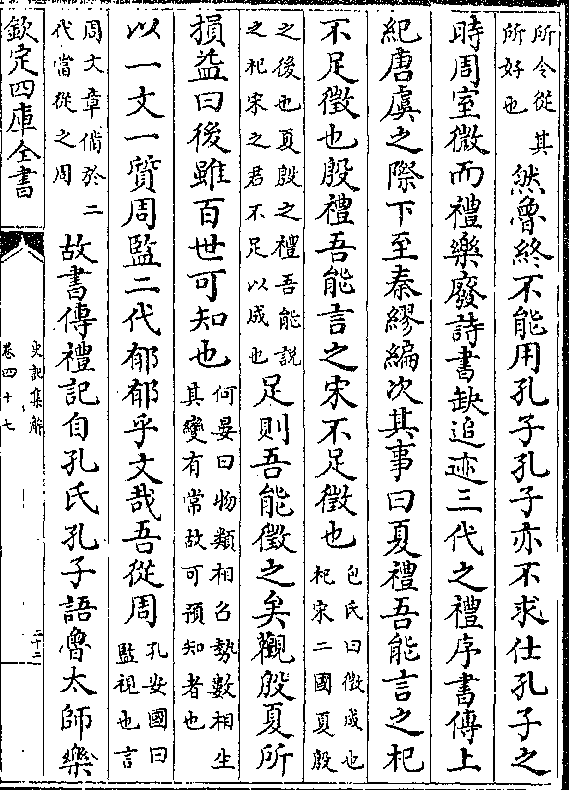 所令從其
所好也
然魯終不能用孔子孔子亦不求仕孔子之
時周室微而禮樂廢詩書缺追迹三代之禮序書傳上
紀唐虞之際下至秦繆編次其事曰夏禮吾能言之杞
不足徵也殷禮吾能言之宋不足徵也
包氏曰徵成也
杞宋二國夏殷
之後也夏殷之禮吾能說
之杞宋之君不足以成也
足則吾能徵之矣觀殷夏所
損益曰後雖百世可知也
何晏曰物類相召勢數相生
其變有常故可預知者也
以一文一質周監二代郁郁乎文哉吾從周
孔安國曰
監視也言
周文章備於二
代當從之周
故書傳禮記自孔氏孔子語魯太師樂
欽定四庫全書
史記集解
卷四十七
二十二